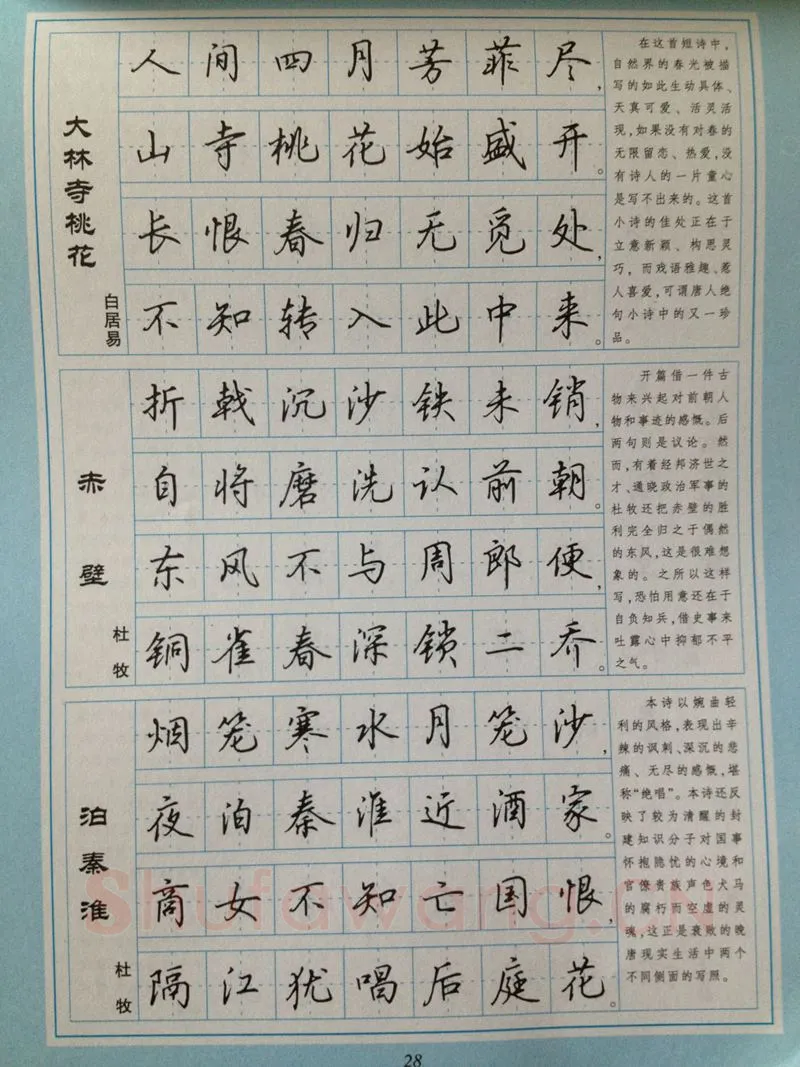 大林寺桃花
白居易
人间四月芳菲尽，
山寺桃花始盛开。
长恨春归无觅处，
不知转入此中来。
在这首短诗中，
自然界的春光被描
写的如此生动具体、
天真可爱、活灵活
现，如果没有对春的
无限留恋、热爱，没
有诗人的一片童心
是写不出来的。这首
小诗的佳处正在于
立意新颖、构思灵
巧，而戏语雅趣、惹
人喜爱，可谓唐人绝
句小诗中的又一珍
品。
赤壁
杜牧
折戟沉沙铁未销，
自将磨洗认前朝。
东风不与周郎便，
铜雀春深锁二乔。
开篇借一件古
物来兴起对前朝人
物和事迹的感慨。后
两句则是议论。然
而，有着经邦济世之
才、通晓政治军事的
杜牧还把赤壁的胜
利完全归之于偶然
的东风，这是很难想
象的。之所以这样
写，恐怕用意还在于
自负知兵，借史事来
吐露心中抑郁不平
之气。
泊秦淮
杜牧
烟笼寒水月笼沙，
夜泊秦淮近酒家。
商女不知亡国恨，
隔江犹唱后庭花。
本诗以婉曲轻
利的风格，表现出辛
辣的讽刺、深沉的悲
痛、无尽的感慨，堪
称“绝唱”。本诗还反
映了较为清醒的封
建知识分子对国事
怀抱隐忧的心境和
官僚贵族声色犬马
的腐朽而空虚的灵
魂，这正是衰败的晚
唐现实生活中两个
不同侧面的写照。
28